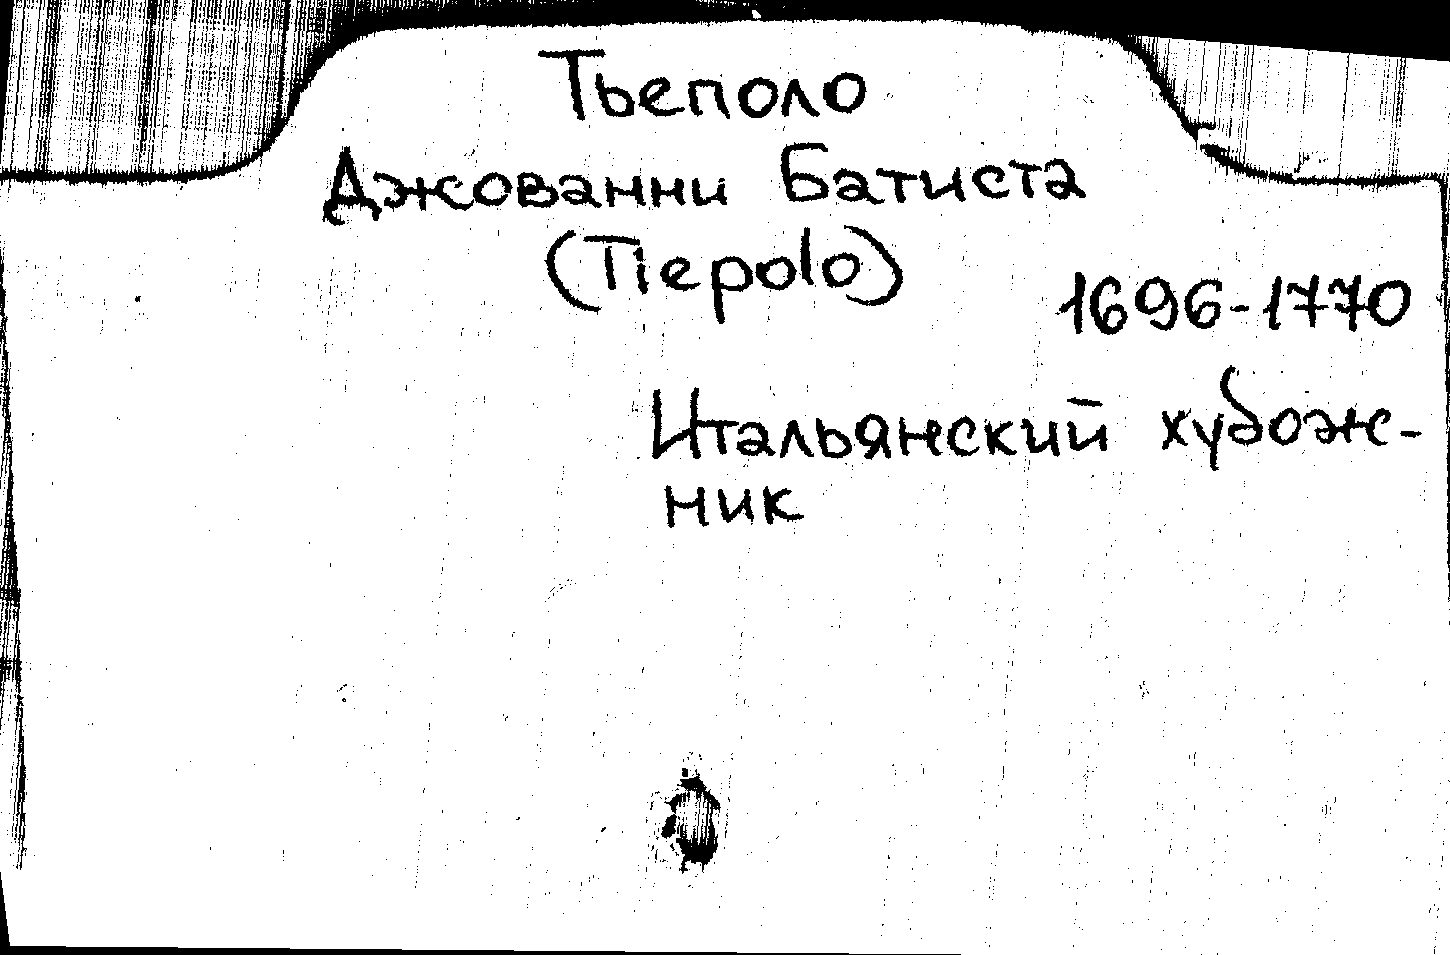 Тьеполо
Джованни Батиста
(Tiepolo)
1696-1770
Итальянский худож-
ник